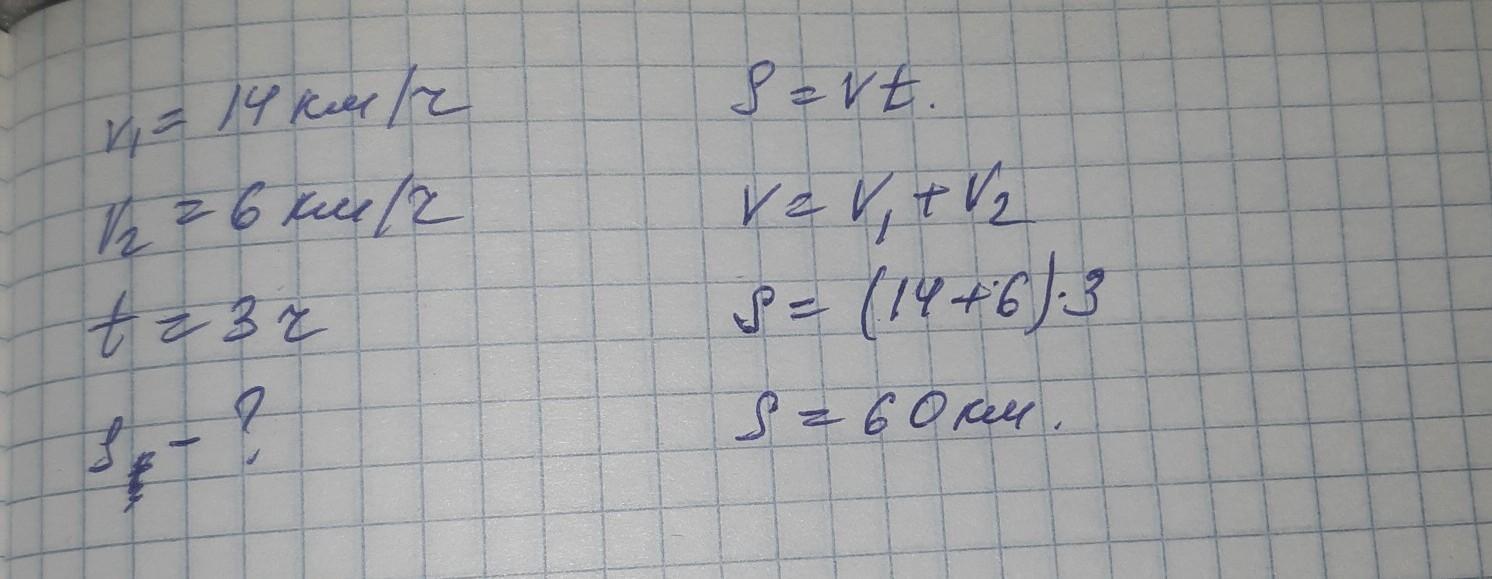 v₁ = 14 км/ч
v₂ = 6 км/ч
t = 3 ч
S - ?
S = vt.
v = v₁ + v₂
S = (14 + 6)·3
S = 60 км.